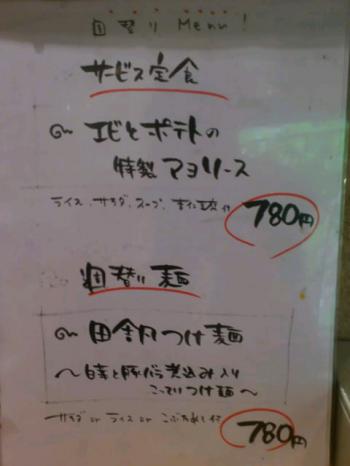 日替り Menu!
サービス定食
エビとポテトの
特製マヨソース
ライス、サラダ、スープ、
780円
週替り麺
田舎風つけ麺
〜白菜と豚バラ煮込み入り
こってりつけ麺〜
サラダ or ライス or
780円